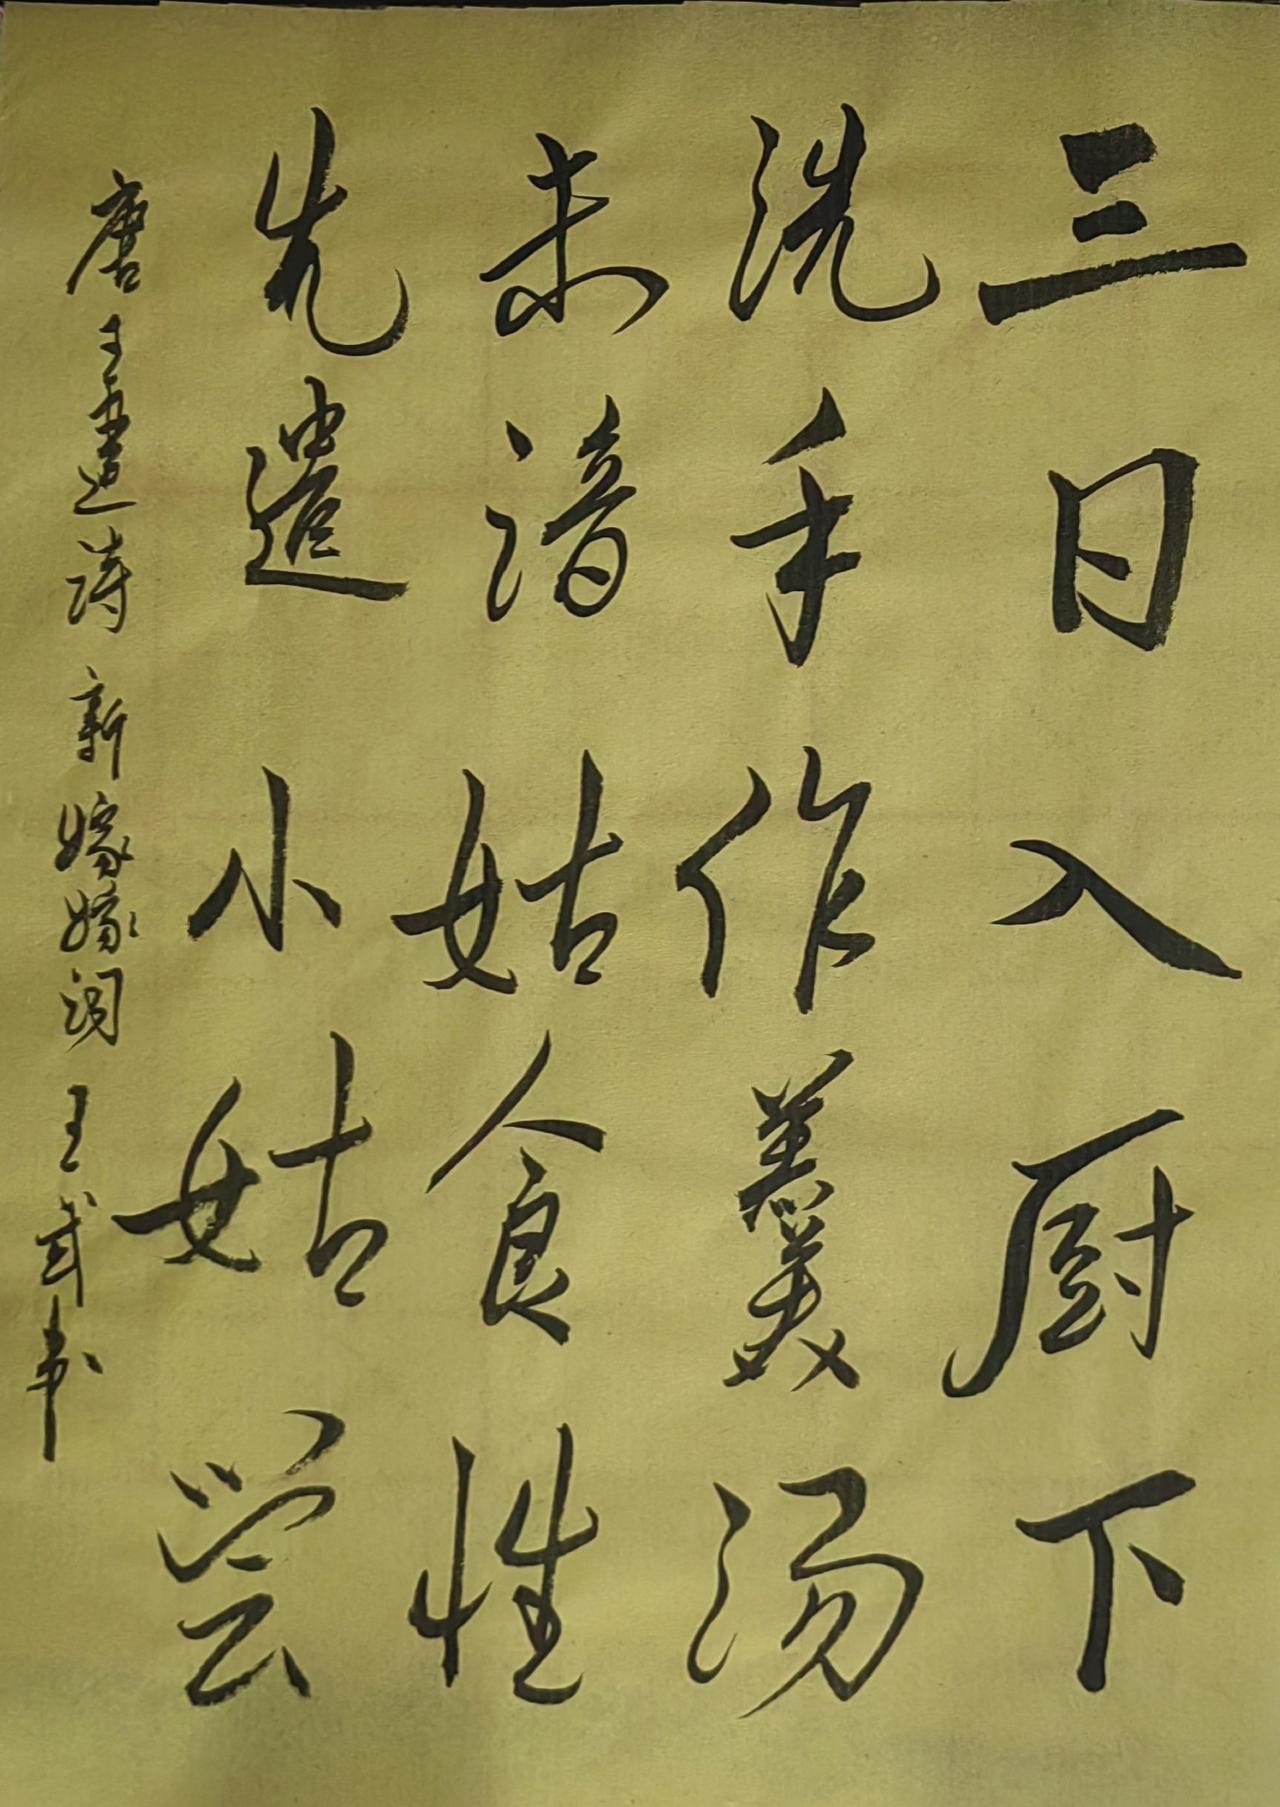 三日入厨下
洗手作羹汤
未谙姑食性
先遣小姑尝
唐王建诗新嫁嫁词王武书